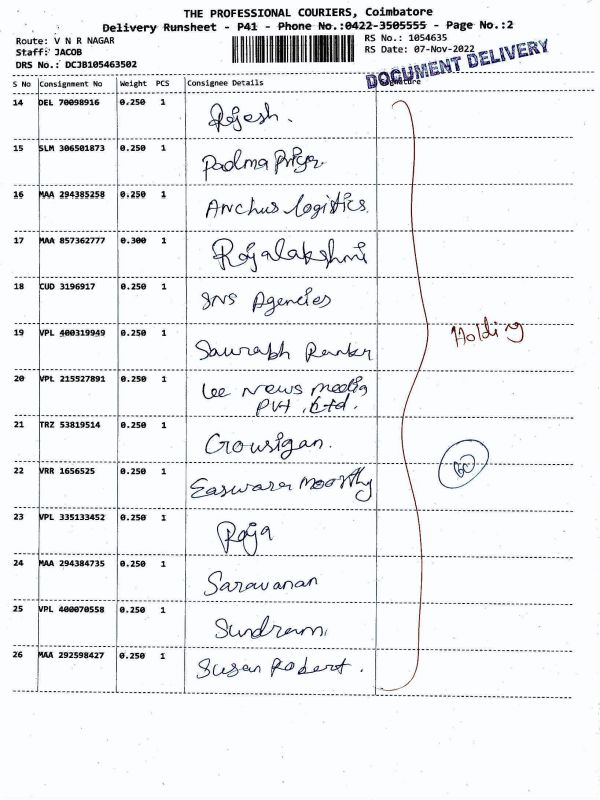 THE PROFESSIONAL COURIERS, Coimbatore
Delivery Runsheet - P41 - Phone No.:0422-3505555 - Page No.:2
Route: V N R NAGAR
Staff: JACOB
DRS No.: DCJB105463502
RS No.: 1054635
RS Date: 07-Nov-2022
DOCUMENT DELIVERY
S No Consignment No Weight PCS Consignee Details Signature
14 DEL 70098916 0.250 1 Rajesh.
15 SLM 306501873 0.250 1 Padma Priya
16 MAA 294385258 0.250 1 Anchus logistics.
17 MAA 857362777 0.300 1 Rajalakshmi
18 CUD 3196917 0.250 1 SNS Agencies
19 VPL 400319949 0.250 1 Saurabh
Holding
20 VPL 215527891 0.250 1 Lee News media
Pvt. Ltd.
21 TRZ 53819514 0.250 1 Gowsigan.
22 VRR 1656525 0.250 1 Easwara moorthy
23 VPL 335133452 0.250 1 Raja
24 MAA 294384735 0.250 1 Saravanan
25 VPL 400070558 0.250 1 Sundram
26 MAA 292598427 0.250 1 Susan Robert.